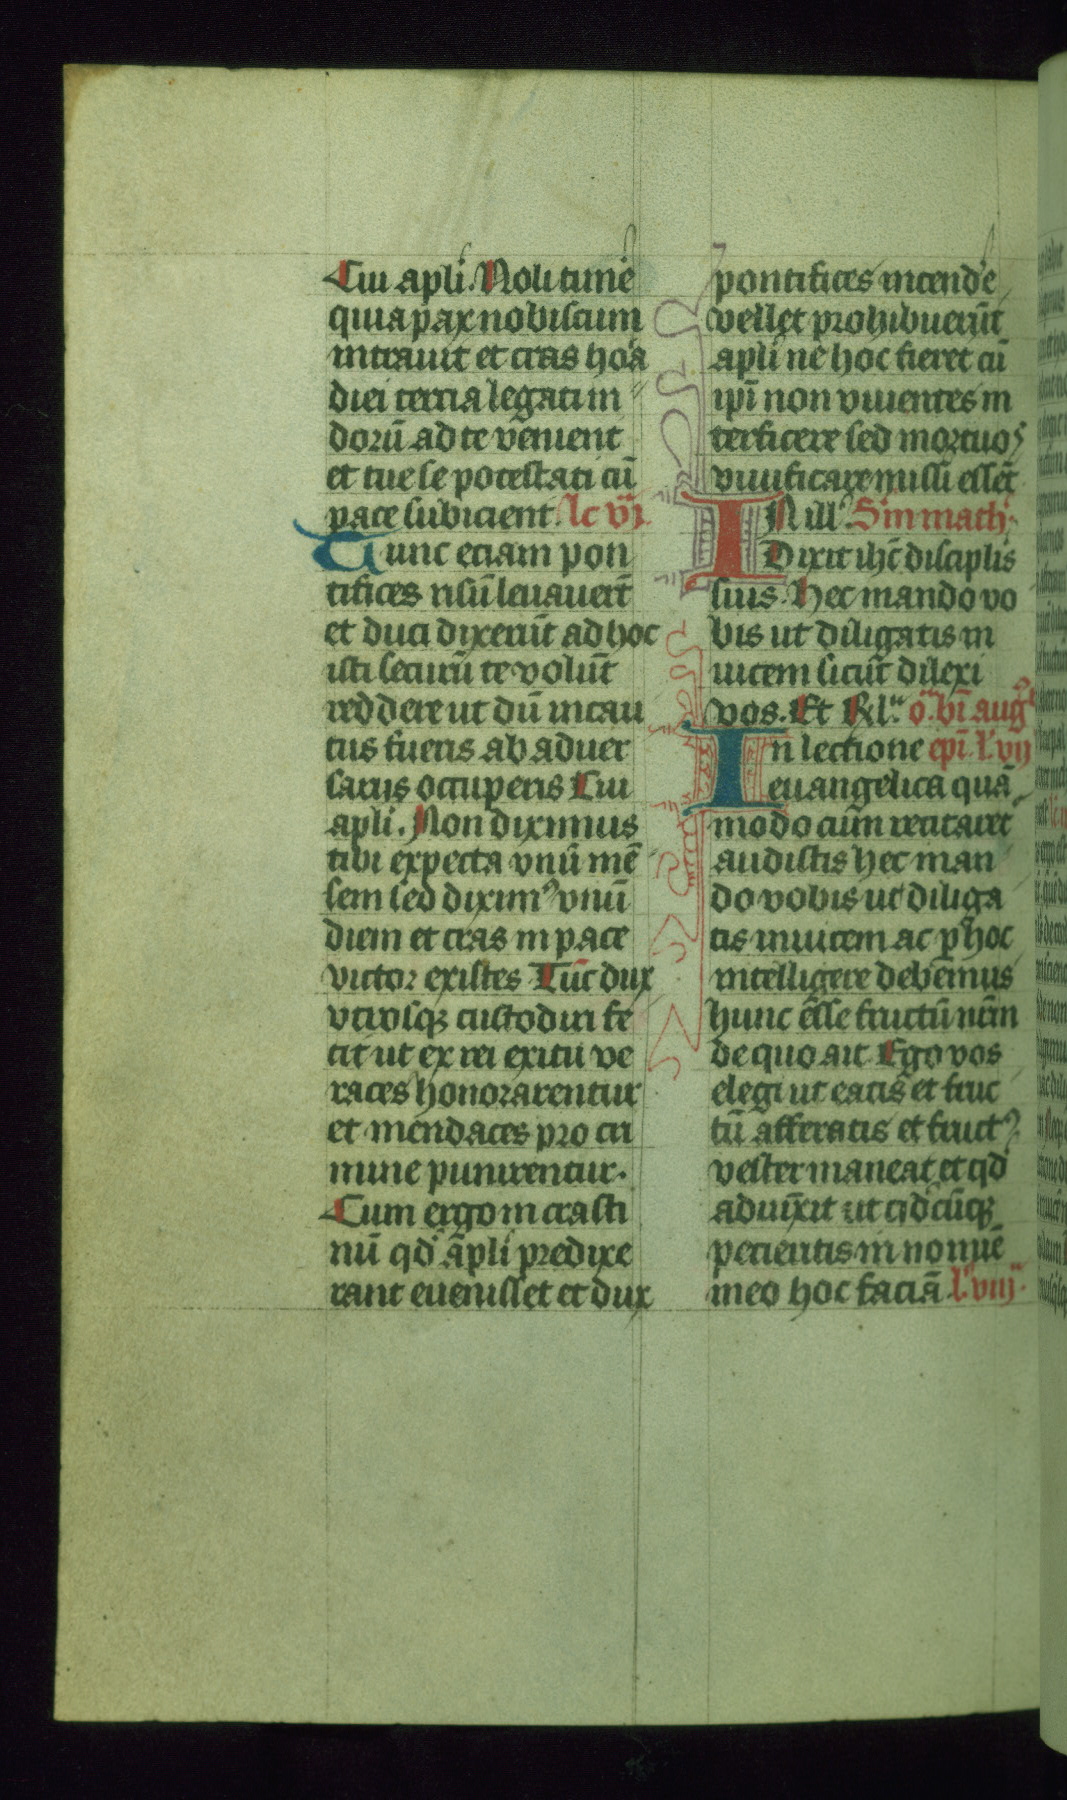 Cui apli. Noli timē
quia pax nobiscum
intrauit et cras hoa
diei tercia legati in
dorū ad te venient
et tue se potestati cū
pace subicient. lc vi.
Tunc eciam pon
tifices risū leuauerūt
et duci dixerūt ad hoc
isti securū te volūt
reddere ut dū incau
tus fueris ab aduer
sariis occuperis Cui
apli. Non diximus
tibi expecta vnū mē
sem sed diximꝰ vnū
diem et cras in pace
victor existes Tūc dux
vtrosqꝫ custodiri fe
cit ut ex rei exitu ve
races honorarentur
et mendaces pro cri
mine punirentur.
Cum ergo in crasti
nū qd apli predixe
rant euenisset et dux
pontifices incende
vellet prohibuerūt
apli ne hoc fieret cū
ipi non viuentes in
terficere sed mortuos
viuificare missi essēt
In ill' Sm math.
Dixit ihc disciplis
suis. Hec mando vo
bis ut diligatis in
uicem sicut dilexi
vos. Et Rl. o. bi augꝰ
In lectione epi. l. vii
euangelica quā
modo cum recitaret
audistis hec man
do vobis ut diliga
tis inuicem ac p hoc
intelligere debemus
hunc esse fructū nrm
de quo ait Ego vos
elegi ut eatis et fruc
tū afferatis et fructꝰ
vester maneat et qd
adiuxit ut qdcūqꝫ
pecieritis in nomie
meo hoc faciā l. viii